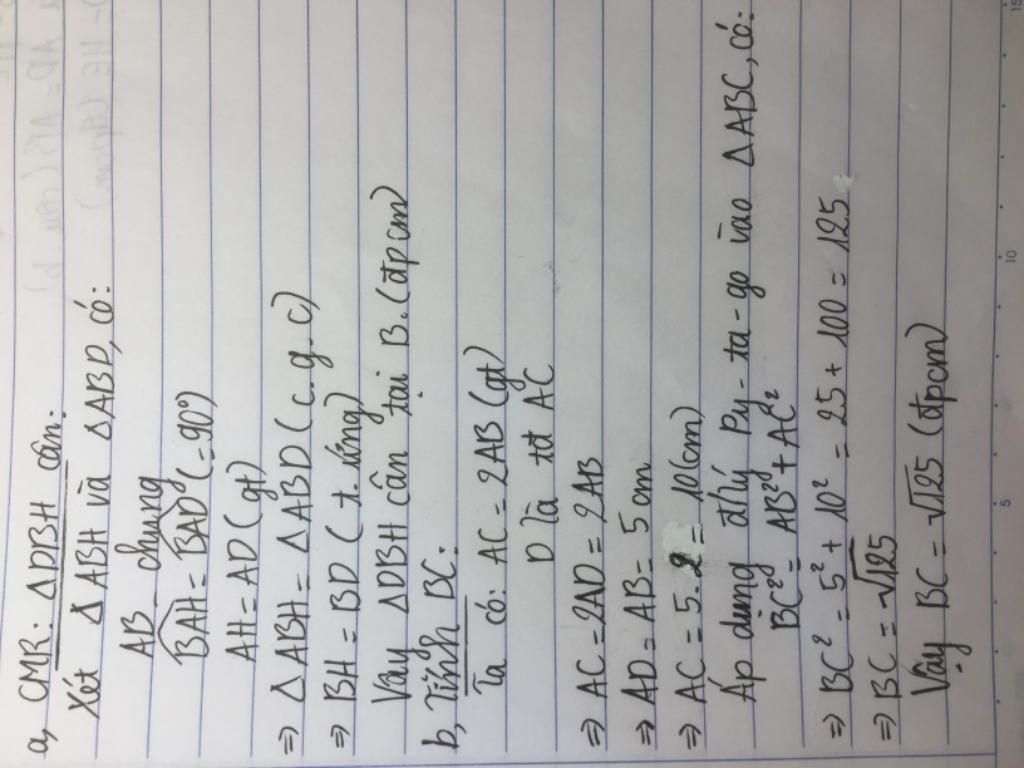 a, CMR: ΔDBH cân:
Xét ΔABH và ΔABD, có:
AB chung
BAH = BAD (= 90°)
AH = AD (gt)
⇒ ΔABH = ΔABD (c.g.c)
⇒ BH = BD (t. ứng)
Vậy ΔDBH cân tại B. (đpcm)
b, Tính BC:
Ta có: AC = 2AB (gt)
D là tđ AC
⇒ AC = 2AD = 2AB
⇒ AD = AB = 5cm
⇒ AC = 5.2 = 10(cm)
Áp dụng đlý Py-ta-go vào ΔABC, có:
BC² = AB² + AC²
⇒ BC² = 5² + 10² = 25 + 100 = 125
⇒ BC = √125
Vậy BC = √125 (đpcm)